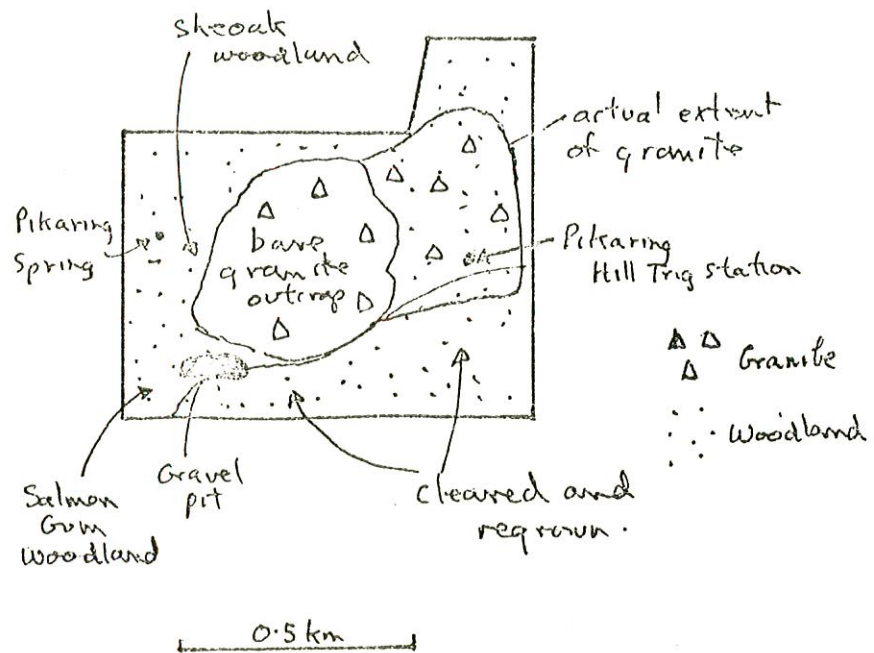 sheoak
woodland
actual extent
of granite
Pikaring
Spring
bare
granite
outcrop
Pikaring
Hill Trig station
Granite
Woodland
Salmon
Gum
woodland
Gravel
pit
cleared and
regrown.
0.5 km